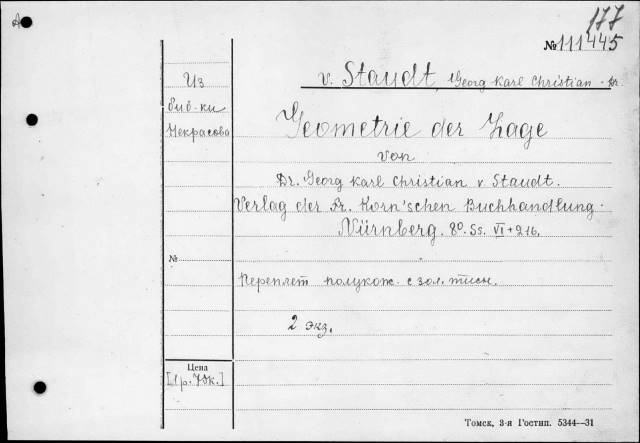 177
№ 111445
Из
биб-ки
Некрасова
v. Staudt, Georg Karl Christian Dr.
Geometrie der Lage
von
Dr. Georg Karl Christian v Staudt.
Verlag der Fr. Korn'schen Buchhandlung.
Nürnberg. 8º. Ss. VI + 216.
№
Переплет полукож. с зол. тисн.
2 экз.
Цена
[1 р. 70к.]
Томск, 3-я Гостип. 5344—31